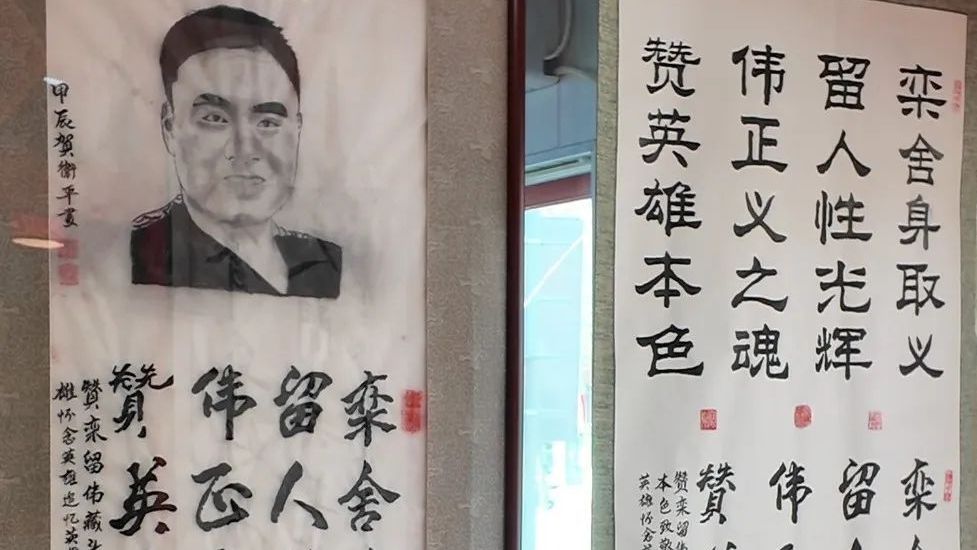 甲辰贺衛平畫
栾舍
留人
伟正
赞英
贊栾留伟藏头
雄怀念英雄追忆英
栾舍身取义
留人性光辉
伟正义之魂
赞英雄本色
栾
留人
伟
赞
赞栾留伟
本色致敬
英雄怀念英